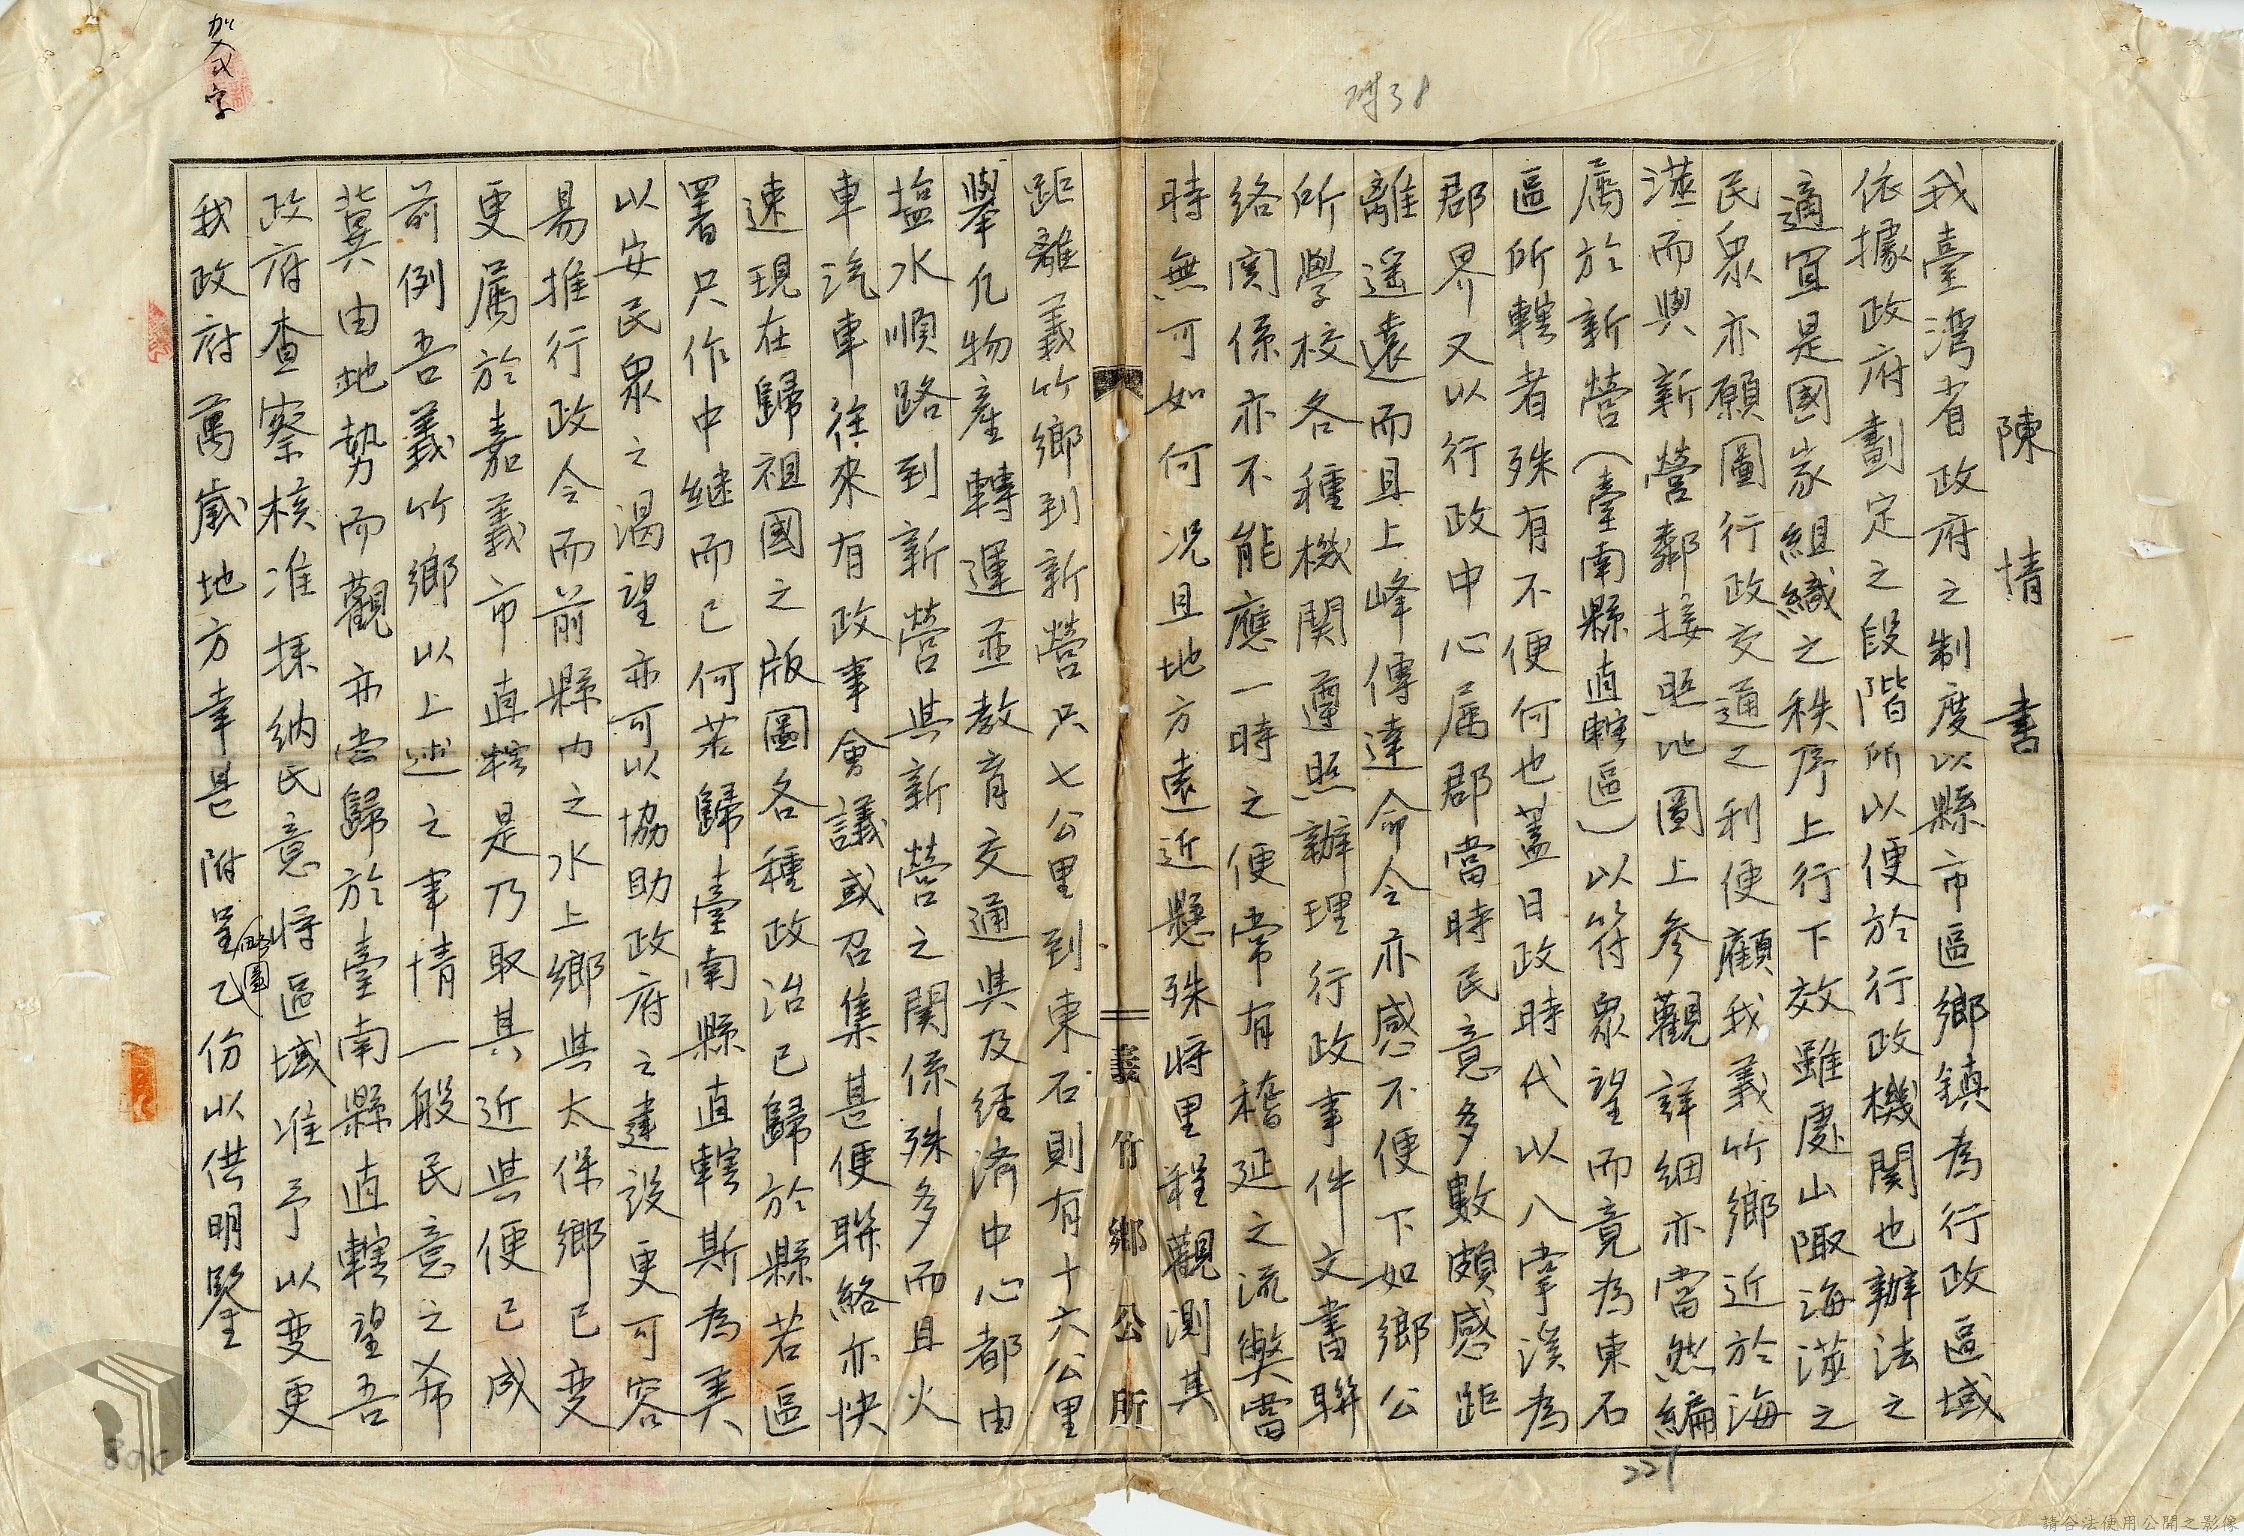 陳情書
我臺灣省政府之制度以縣市區鄉鎮為行政區域
依據政府劃定之段階所以便於行政機関也辦法之
適宜是國家組織之秩序上行下效雖處山陬海澨之
民衆亦願圖行政交通之利便顧我義竹鄉近於海
澨而與新營鄰接照地圖上參觀詳細亦當然編
属於新營(臺南縣直轄區)以符衆望而竟為東石
區所轄者殊有不便何也蓋日政時代以八掌溪為
郡界又以行政中心属郡當時民意多數頗感距
離遥遠而且上峰傳達命令亦感不便下如鄉公
所學校各種機関遵照辦理行政事件文書聯
絡関係亦不能應一時之便常有稽延之流獘當
時無可如何况且地方遠近懸殊將里程觀測其
義竹鄉公所
距離義竹鄉到新營只七公里到東石則有十六公里
舉凡物產轉運並教育交通與及経济中心都由
塩水順路到新營其新營之関係殊多而且火
車汽車往來有政事會議或召集甚便聯絡亦快
速現在歸祖國之版圖各種政治已歸於縣若區
署只作中継而已何若歸臺南縣直轄斯為美
以安民衆之渴望亦可以協助政府之建設更可容
易推行政令而前縣内之水上鄉與太保鄉已变
更属於嘉義市直轄是乃取其近與便已成
前例吾義竹鄉以上述之事情一般民意之希
冀由地势而觀亦當歸於臺南縣直轄望吾
政府查察核准採納民意將區域准予以变更
我政府萬歲地方幸甚附呈略圖乙份以供明鑒
加入弍字
221